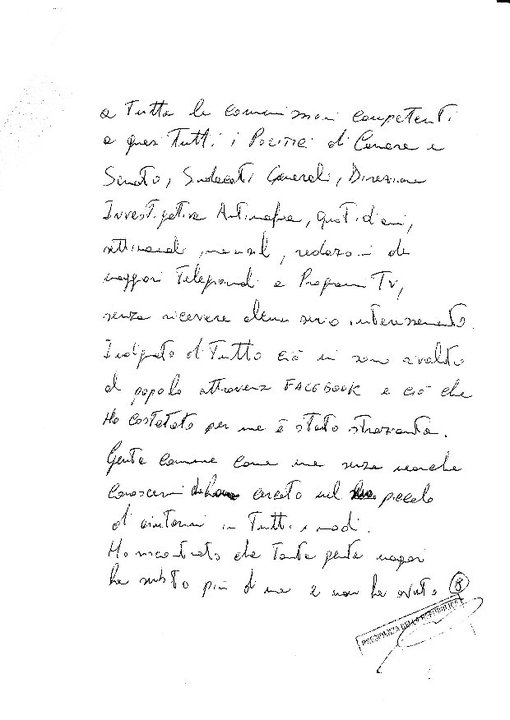 a Tutta le commissioni competenti
a quasi Tutti i Politici di Camera e
Senato, Sindacati Generali, Direzione
Investigativa Antimafia, quotidiani,
settimanali, mensili, redazioni dei
maggiori Telegiornali e Programmi TV,
senza ricevere alcun serio interessamento.
Indignato di Tutto ciò mi sono rivolto
al popolo attraverso FACEBOOK e ciò che
Ho costatato per me è stato straziante.
Gente comune come me senza neanche
conoscermi cercato nel piccolo
di aiutarmi in Tutti i modi.
Ho riscontrato che Tanta gente magari
ha subito più di me e non ha avuto
8
PRESIDENZA DELLA REPUBBLICA